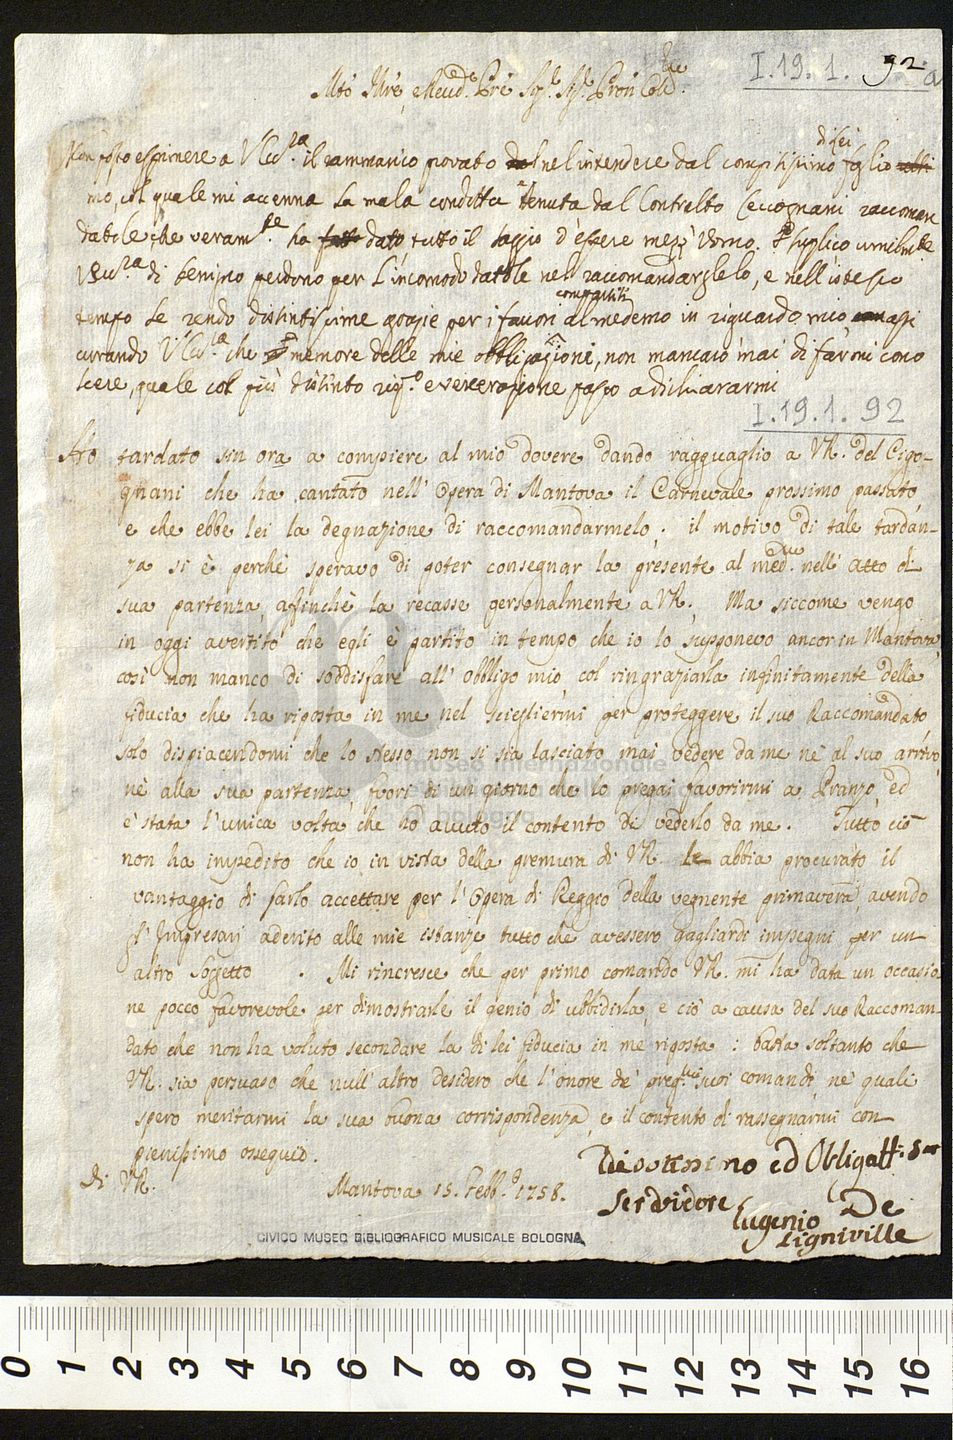 I.19.1. 92 a
Mto Illre, e Reved. Pre Sigr. Sigr. Pron Colmo.
di Lei
Non posso esprimere a V Rev.za il rammarico provato nel intendere dal compitissimo foglio
mo, col quale mi accenna la mala condotta tenuta dal Contralto Cecognani raccoman
datole che veram.te ha fatto dato tutto il saggio d'essere mezz' Uomo. suplico umilm.te
V Rev.za di benigno perdono per l'incomodo datole nel raccomandarglelo, e nell'istesso
compartiti
tempo le rendo distintissime grazie per i favori al medemo in riguardo mio, assi
currando V Rev.za che memore delle mie obbligazioni, non mancarò mai di farmi cono
scere, quale col più distinto risp.o e venerazione passo a dichiararmi
I.19.1. 92
Ho tardato sin ora a compiere al mio dovere dando ragguaglio a VR. del Cigo-
gnani che ha cantato nell' Opera di Mantova il Carnevale prossimo passato,
e che ebbe lei la degnazione di raccomandarmelo. il motivo di tale tardan-
za si è perchè speravo di poter consegnar la presente al med.mo nell' atto di
sua partenza, affinchè la recasse personalmente a VR. Ma siccome vengo
in oggi avertito che egli è partito in tempo che io lo supponevo ancor in Mantova,
così non manco di soddisfare all' obbligo mio, col ringraziarla infinitamente della
fiducia che ha riposta in me nel sciegliermi per proteggere il suo Raccomandato
solo dispiacendomi che lo stesso non si sia lasciato mai vedere da me nè al suo arrivo,
nè alla sua partenza, fuori di un giorno che lo pregai favorirmi a Pranzo, ed
è stata l'unica volta che ho avuto il contento di vederlo da me. Tutto ciò
non ha impedito che io in vista della premura di VR. le abbia procurato il
vantaggio di farlo accettare per l'Opera di Reggio della vegnente primavera, avendo
gl' Impresari aderito alle mie istanze tutto che avessero gagliardi impegni per un
altro Soggetto. Mi rincresce che per primo comando VR. mi ha data un occasio
ne pocco favorevole per dimostrarle il genio di ubbidirla, e ciò a causa del suo Raccoman-
dato che non ha voluto secondare la di lei fiducia in me riposta: basta soltanto che
VR. sia persuaso che null' altro desidero che l'onore de' preg.mi suoi comandi, ne' quali
spero meritarmi la sua buona corrispondenza, e il contento di rassegnarmi con
pienissimo ossequio.
di VR.
Mantova 15. Febb.o 1758.
Devotissimo ed Obligatt.
Servidore
Eugenio De
Ligniville
museo internazionale
CIVICO MUSEO BIBLIOGRAFICO MUSICALE BOLOGNA
0 1 2 3 4 5 6 7 8 9 10 11 12 13 14 15 16